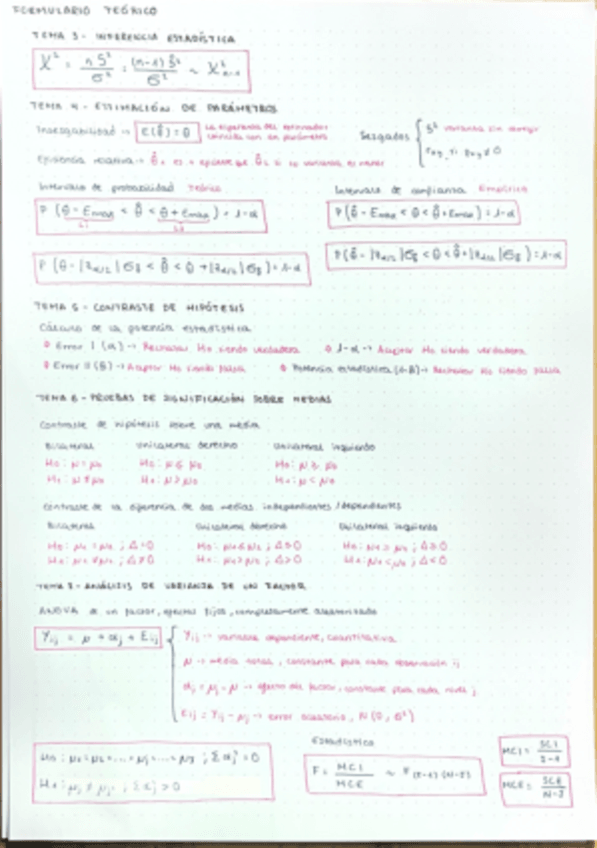 FORMULARIO TEÓRICO
TEMA 3 - INFERENCIA ESTADÍSTICA
X² = nS² / σ² = (n-1) Ŝ² / σ² ~ X²n-1
TEMA 4 - ESTIMACIÓN DE PARÁMETROS
Insesgabilidad → E(θ̂) = θ La esperanza del estimador coincide con su parámetro
Sesgados { S² varianza sin corregir
rxy, si ρxy ≠ 0
Eficiencia relativa → θ̂1 es + eficiente que θ̂2 si su varianza es menor
Intervalo de probabilidad Teórico
P (θ - Emax < θ̂ < θ + Emax) = 1-α
P (θ - |Zα/2| σθ̂ < θ̂ < θ + |Zα/2| σθ̂) = 1-α
Intervalo de confianza Empírico
P (θ̂ - Emax < θ < θ̂ + Emax) = 1-α
P (θ̂ - |Zα/2| σθ̂ < θ < θ̂ + |Zα/2| σθ̂) = 1-α
TEMA 5 - CONTRASTE DE HIPÓTESIS
Cálculo de la potencia estadística
Error I (α) → Rechazar H0 siendo verdadera
1-α → Aceptar H0 siendo verdadera
Error II (β) → Aceptar H0 siendo falsa
Potencia estadística (1-β) → Rechazar H0 siendo falsa
TEMA 6 - PRUEBAS DE SIGNIFICACIÓN SOBRE MEDIAS
Contraste de hipótesis sobre una media
Bilateral Unilateral derecho Unilateral izquierdo
H0: μ = μ0 H0: μ ≤ μ0 H0: μ ≥ μ0
H1: μ ≠ μ0 H1: μ > μ0 H1: μ < μ0
Contraste de la diferencia de dos medias independientes / dependientes
Bilateral Unilateral derecho Unilateral izquierdo
H0: μ1 = μ2 ; Δ=0
H1: μ1 ≠ μ2 ; Δ≠0
ANÁLISIS DE VARIANZA DE UN FACTOR
ANOVA de un factor, efectos fijos, completamente aleatorizado
Yij = μ + αj + Eij
Yij → variable dependiente, cuantitativa
μ → media total, constante para cada observación ij
αj = μj - μ → efecto del factor, constante para cada nivel j
Eij = Yij - μj → error aleatorio, N (0, σ²)
H0: μ1 = μ2 = ... = μj = ... = μJ ; Σαj² = 0
H1: μj ≠ μj' ; Σαj² > 0
Estadístico
F = MCI / MCE ~ F (J-1) (N-J)
MCI = SCI / J-1
MCE = SCE / N-J